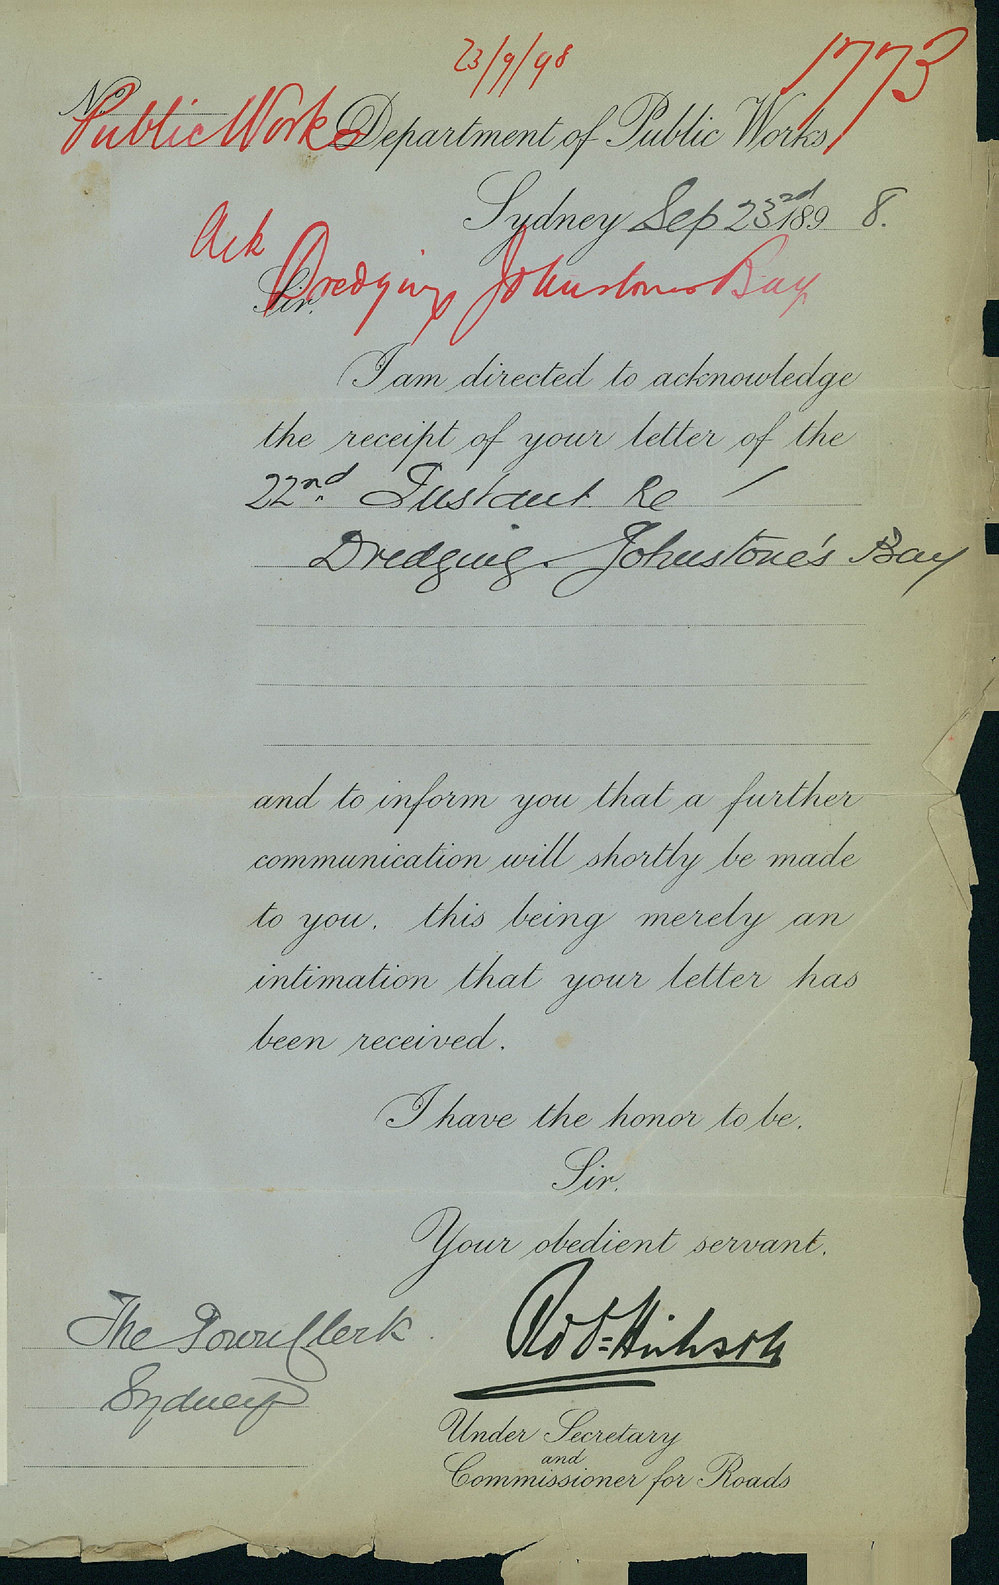 23/9/98
1773
No
Public Works
Department of Public Works,
Sydney Sep 23rd 1898.
Ack
Dredging Johnstones Bay
Sir,
I am directed to acknowledge
the receipt of your letter of the
22nd Instant Re
Dredging. Johnstone's Bay
and to inform you that a further
communication will shortly be made
to you, this being merely an
intimation that your letter has
been received.
I have the honor to be,
Sir,
Your obedient servant,
Robt Hickson
The Town Clerk
Sydney
Under Secretary
and
Commissioner for Roads